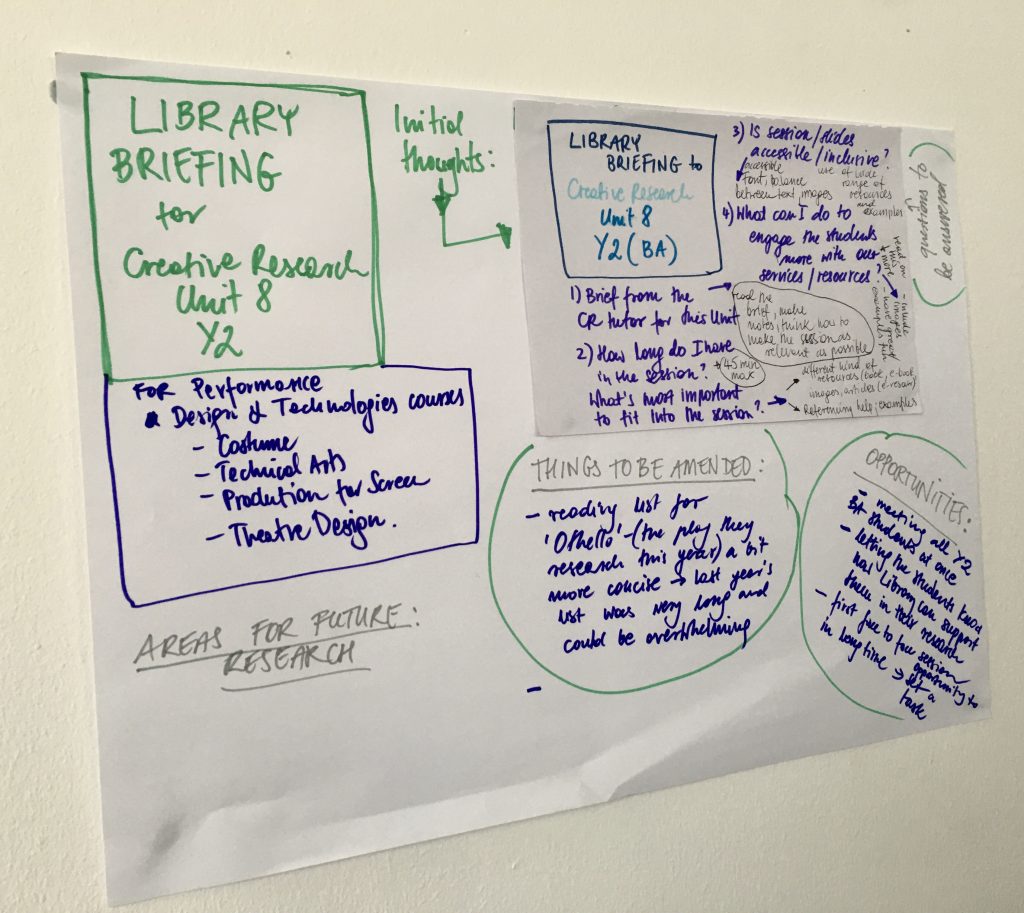 LIBRARY
BRIEFING
for
Creative Research
Unit 8
Y2
FOR Performance
& Design & Technologies courses
- Costume
- Technical Arts
- Prodution for Screen
- Theatre Design.
AREAS FOR FUTURE:
RESEARCH
Initial
thoughts:
LIBRARY
BRIEFING to
Creative Research
Unit 8
Y2 (BA)
1) Brief from the
CR tutor for this Unit
read the
brief, make
notes, think how to
make the session as
relevant as possible
2) How long do I have
in the session?
45 min
max
What's most important
to fit into the session?
different kind of
resources (book, e-book
images, articles (e-resour)
Referencing help, examples
3) IS session/slides
accessible/inclusive?
accessible
Font, balance
between text, images
use of wide
range of
resources
and examples
4) What can I do to
engage the students
more with our
services/resources?
read on
this
more
- inlude
images
- have great
examples
questions to
be answered
THINGS TO BE AMENDED:
- reading list for
'Othello' - (the play they
research this year) a bit
more concise → last year's
list was very long and
could be overwhelming
-
OPPORTUNITIES:
- meeting all Y2
students at once
- letting the students know
how Library can support
them in their research
- first face to face session
in long time → opportunity to
set a
task